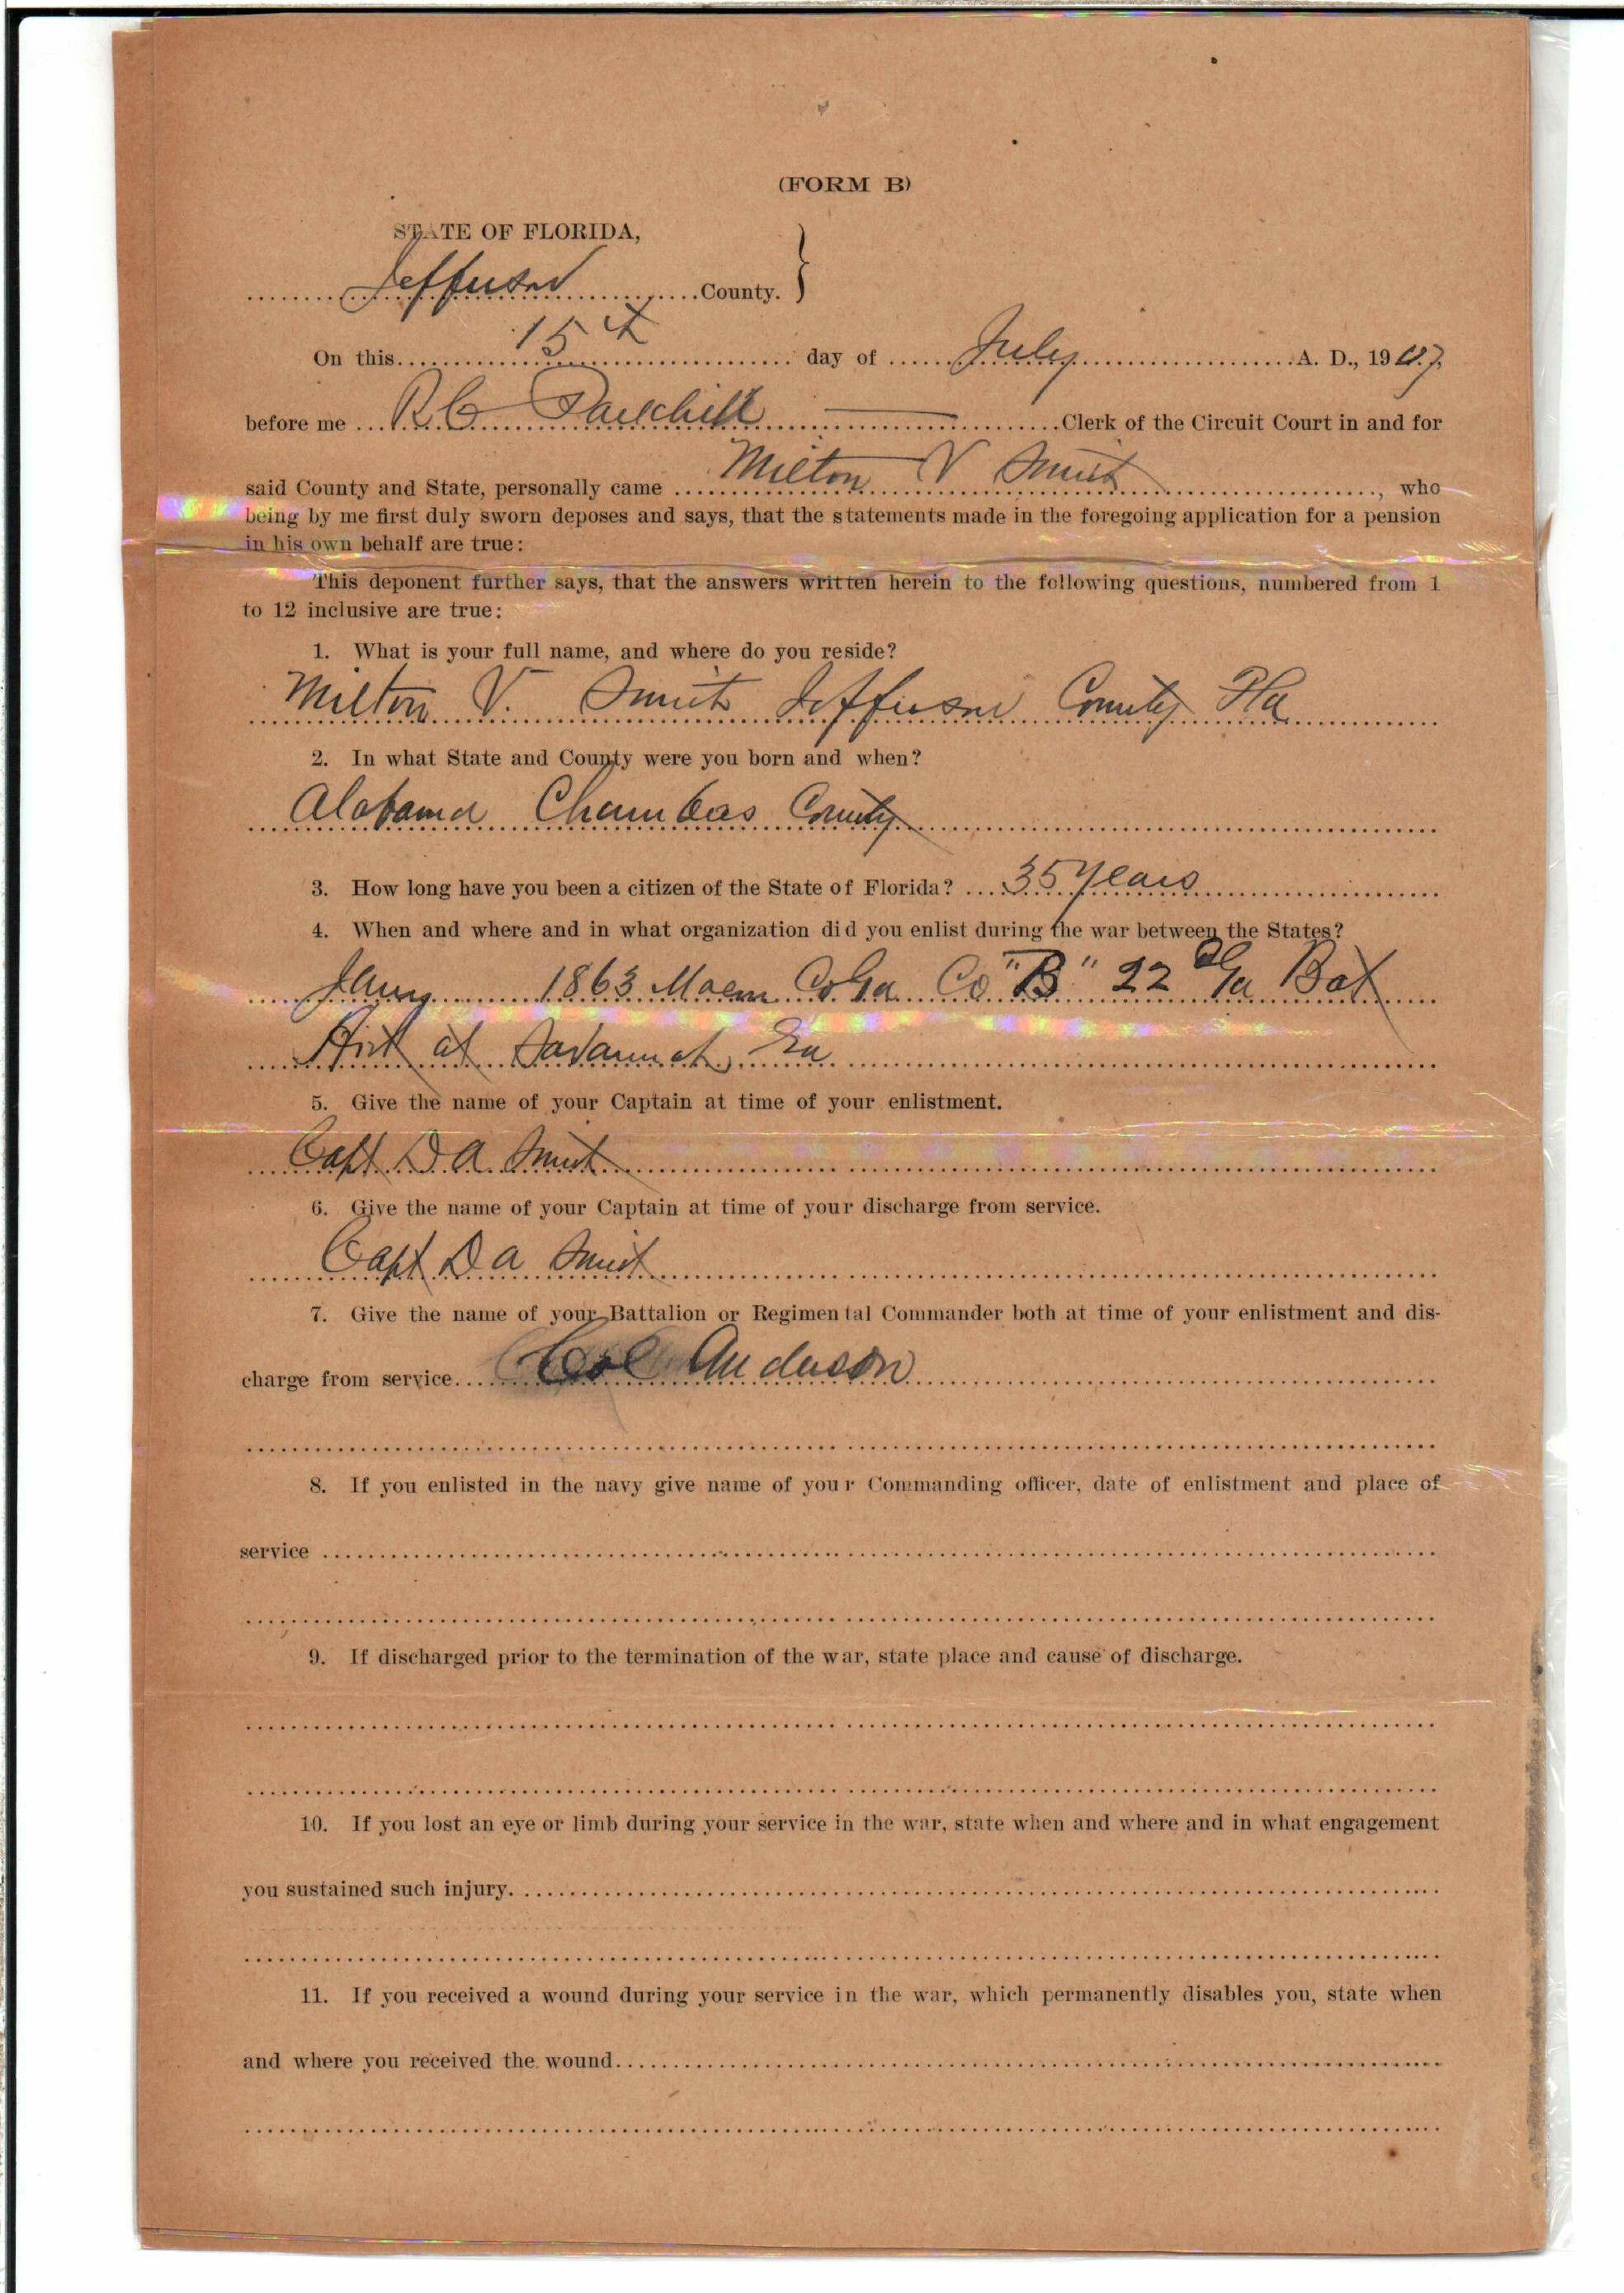 (FORM B)
STATE OF FLORIDA,
Jefferson County.
On this 15th day of July A. D., 1907,
before me R C Clerk of the Circuit Court in and for
said County and State, personally came Milton V Smith, who
being by me first duly sworn deposes and says, that the statements made in the foregoing application for a pension
in his own behalf are true:
This deponent further says, that the answers written herein to the following questions, numbered from 1
to 12 inclusive are true:
1. What is your full name, and where do you reside?
Milton V. Smith Jefferson County Fla
2. In what State and County were you born and when?
Alabama Chambers County
3. How long have you been a citizen of the State of Florida? 35 years
4. When and where and in what organization did you enlist during the war between the States?
1863 Macon Co Ga Co "B" 22 Ga Bat
at Savannah, Ga
5. Give the name of your Captain at time of your enlistment.
Capt D A Smith
6. Give the name of your Captain at time of your discharge from service.
Capt D A Smith
7. Give the name of your Battalion or Regimental Commander both at time of your enlistment and dis-
charge from service. Col Anderson
8. If you enlisted in the navy give name of your Commanding officer, date of enlistment and place of
service
9. If discharged prior to the termination of the war, state place and cause of discharge.
10. If you lost an eye or limb during your service in the war, state when and where and in what engagement
you sustained such injury.
11. If you received a wound during your service in the war, which permanently disables you, state when
and where you received the wound.